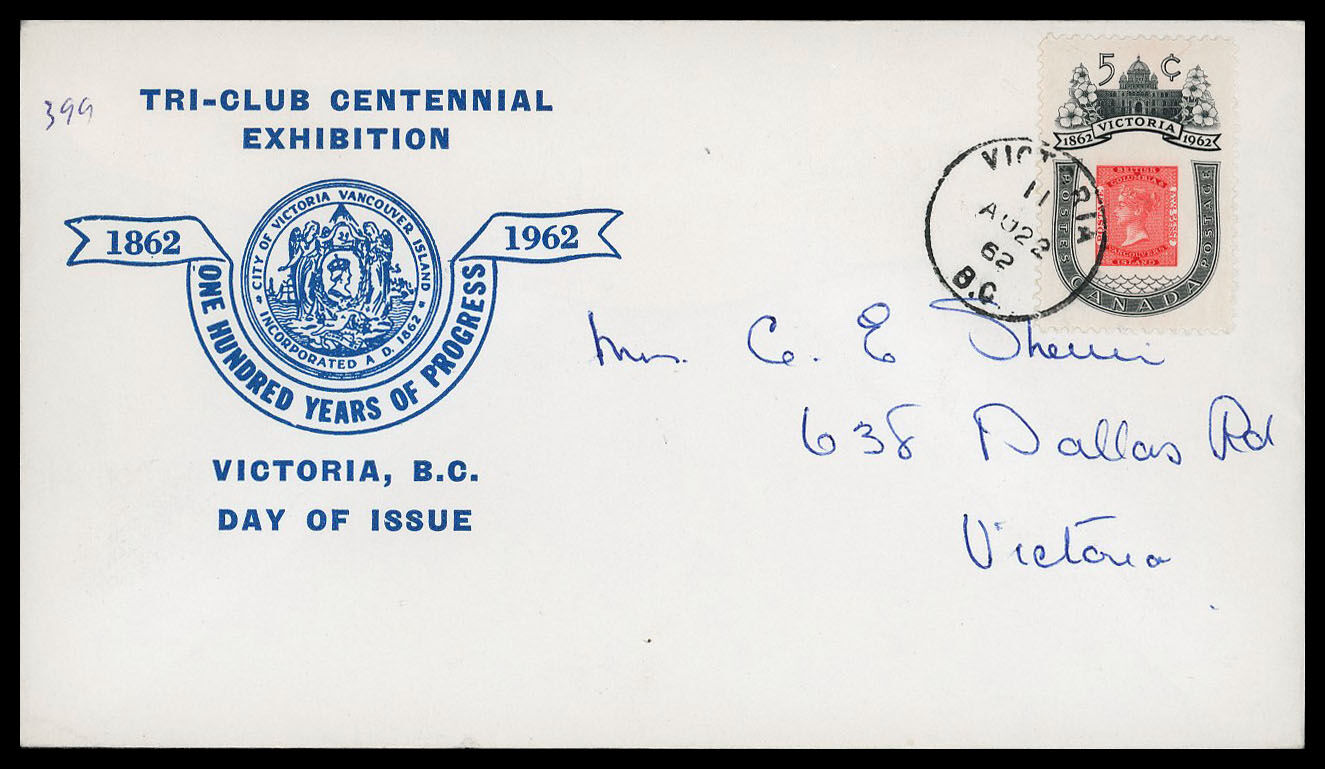 399
TRI-CLUB CENTENNIAL
EXHIBITION
1862
1962
CITY OF VICTORIA VANCOUVER ISLAND
INCORPORATED A.D. 1862
ONE HUNDRED YEARS OF PROGRESS
VICTORIA, B.C.
DAY OF ISSUE
5 ¢
VICTORIA
1862 1962
BRITISH
COLUMBIA &
VANCOUVER
ISLAND
POSTES CANADA POSTAGE
VICTORIA
11
AU 22
62
B.C.
Mrs. C. E
638 Dallas Rd
Victoria